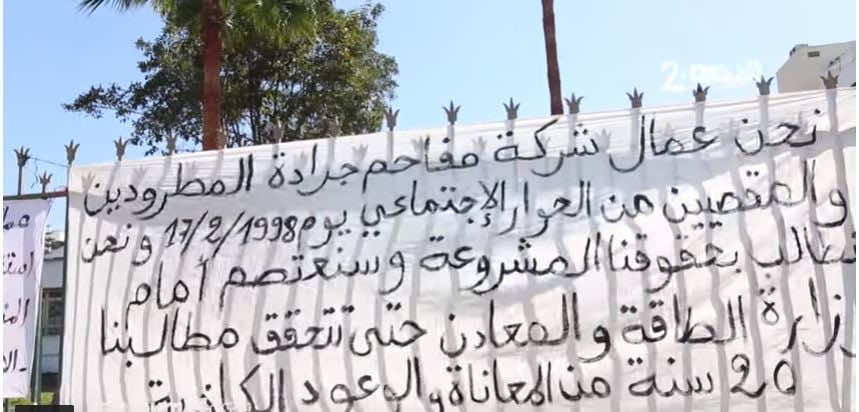 نحن عمال شركة مفاحم جرادة المطرودين
والمقصيين من الحوار الإجتماعي يوم 17/2/1998 و نحن
نطالب بحقوقنا المشروعة وسنعتصم أمام
وزارة الطاقة والمعادن حتى تتحقق مطالبنا
20 سنة من المعاناة والوعود الكاذبة